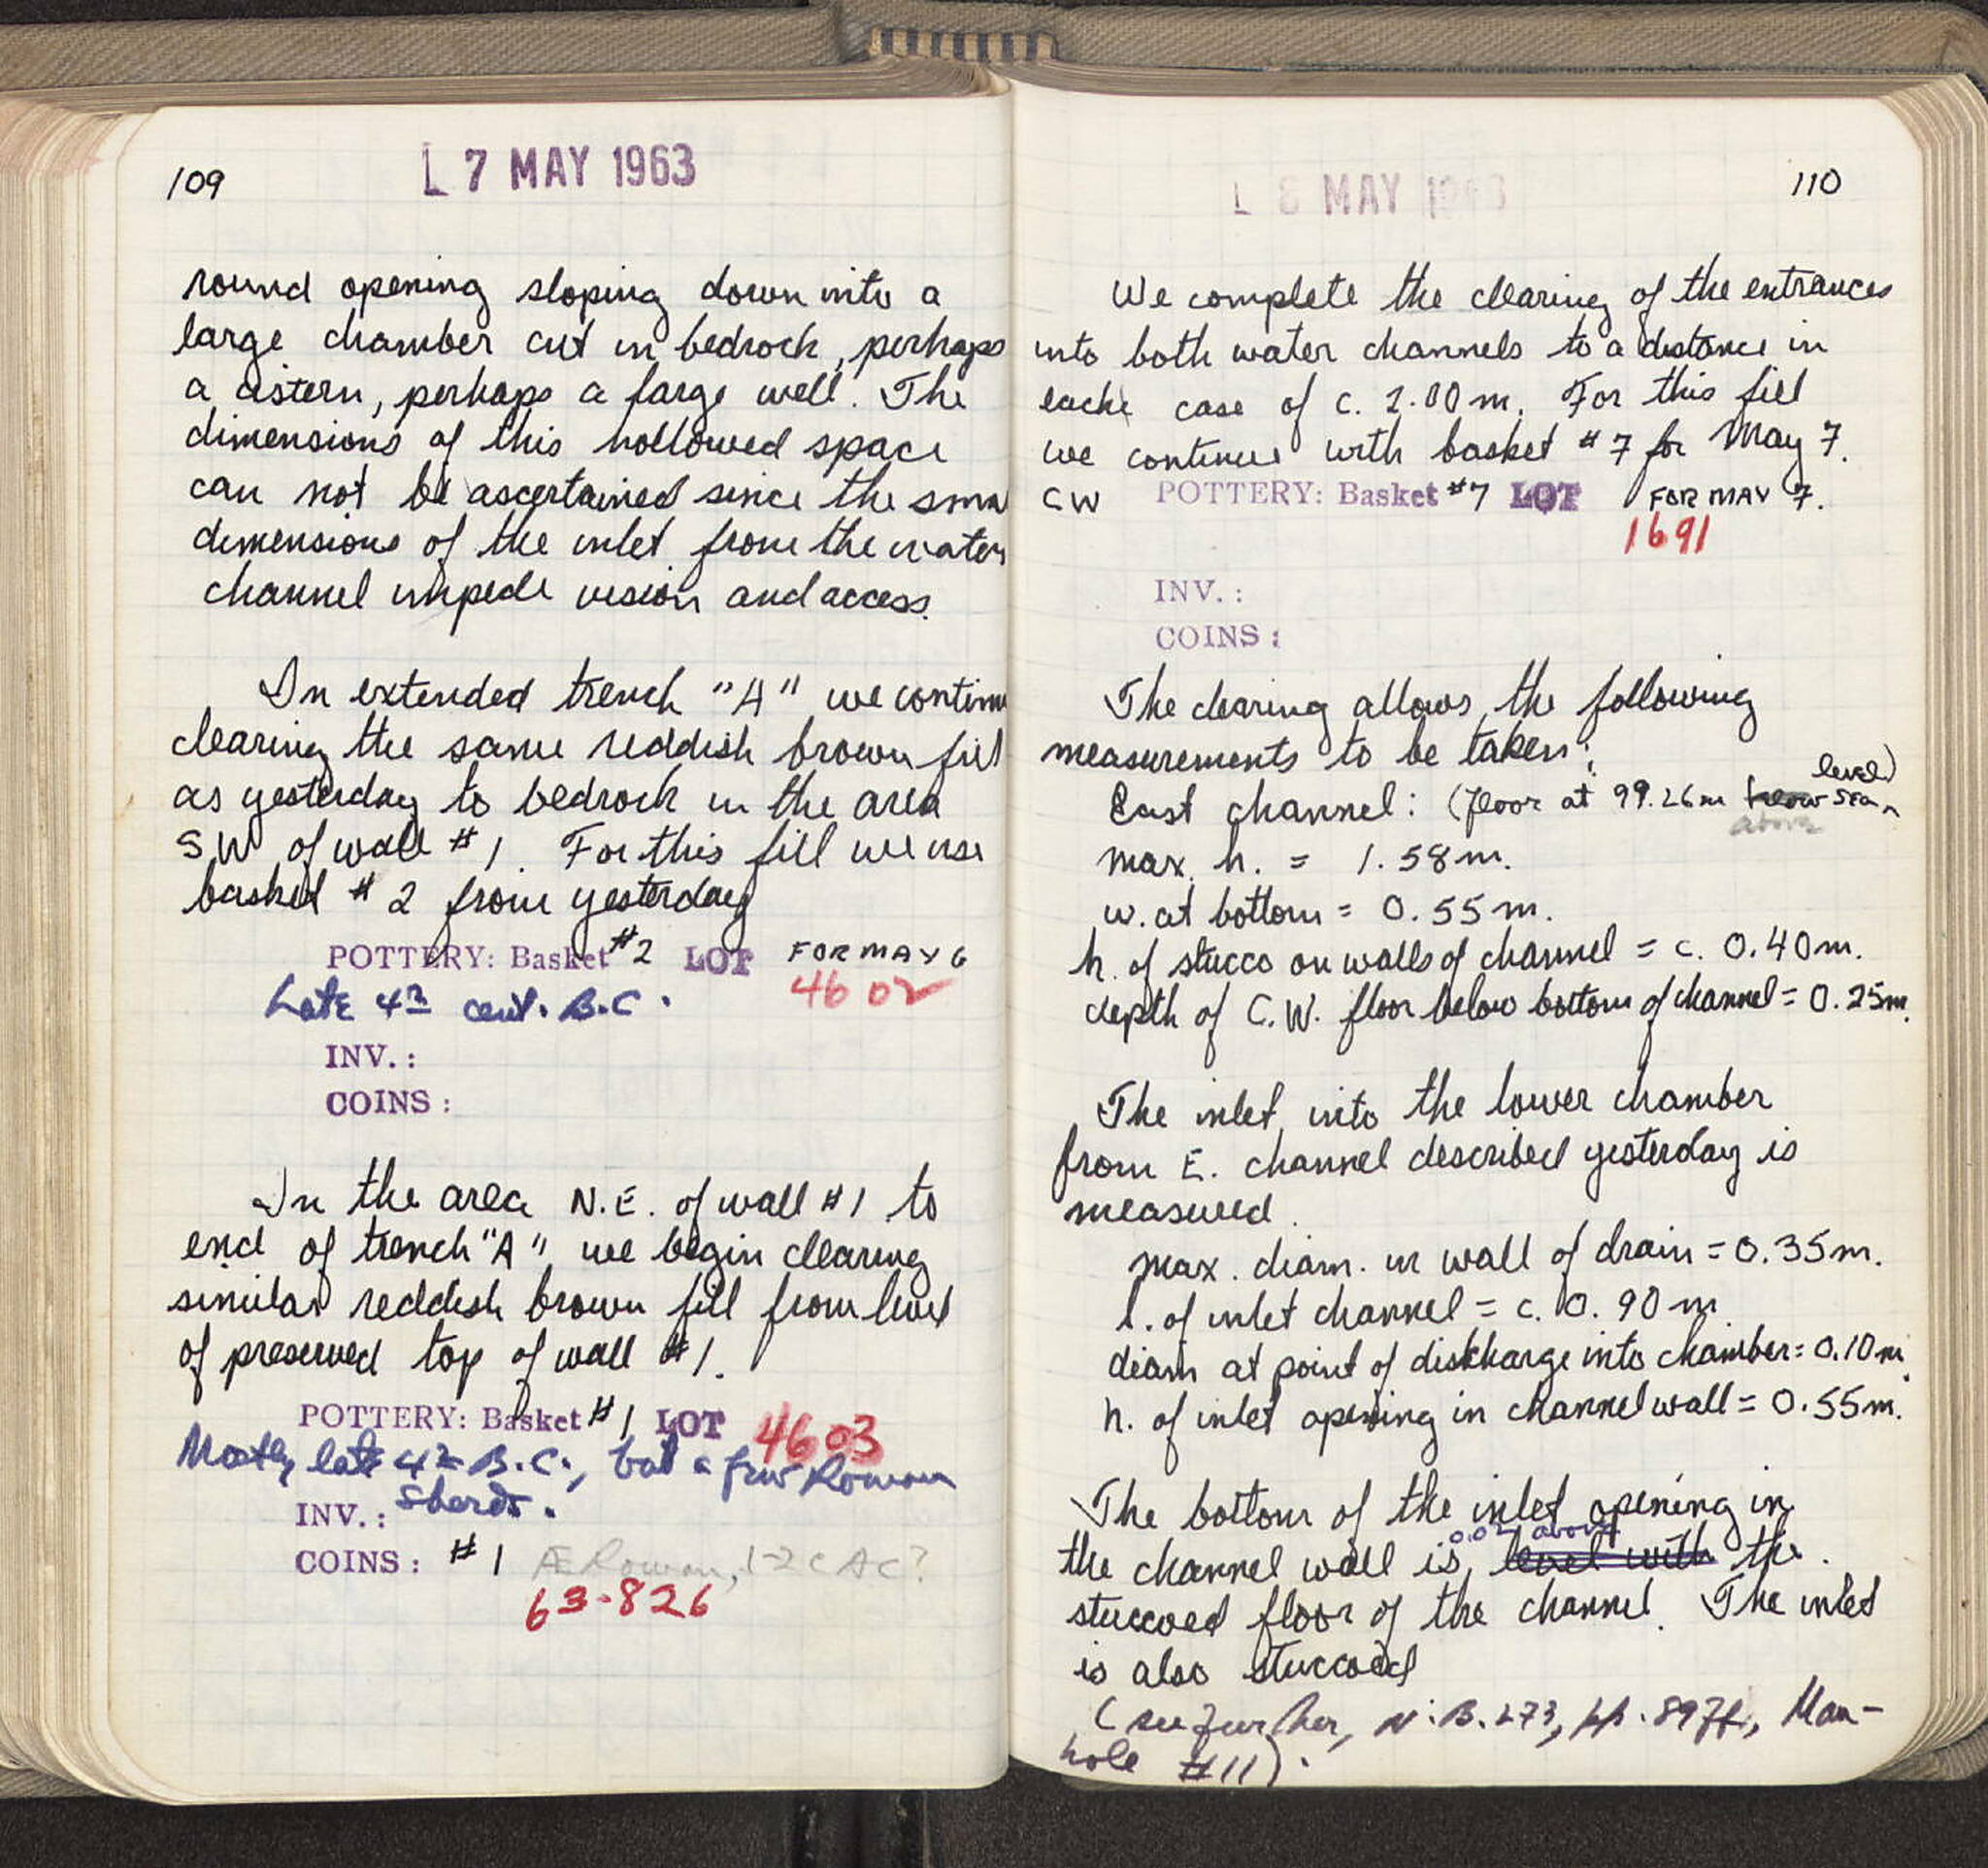 109
L 7 MAY 1963
round opening sloping down into a
large chamber cut in bedrock, perhaps
a cistern, perhaps a large well. The
dimensions of this hollowed space
can not be ascertained since the sma
dimensions of the inlet from the water
channel impede vision and access.
In extended trench "A" we continu
clearing the same reddish brown fill
as yesterday to bedrock in the area
SW of wall #1. For this fill we use
basket #2 from yesterday
POTTERY: Basket #2 LOT FOR MAY 6
4602
Late 4th cent. B.C.
INV.:
COINS:
In the area N.E. of wall #1 to
end of trench "A" we begin clearing
similar reddish brown fill from level
of preserved top of wall #1.
POTTERY: Basket #1 LOT 4603
Mostly late 4th B.C., but a few Roman
sherds.
INV.:
COINS: #1 Æ Roman, 1-2 c AC?
63-826
L 8 MAY 1963
110
We complete the clearing of the entrances
into both water channels to a distance in
each case of c. 2.00 m. For this fill
we continue with basket #7 for May 7.
CW POTTERY: Basket #7 LOT FOR MAY 7.
1691
INV.:
COINS:
The clearing allows the following
measurements to be taken:
East channel: (floor at 99.26m below above sea level)
max. h. = 1.58m.
w. at bottom = 0.55m.
h. of stucco on walls of channel = c. 0.40m.
depth of C.W. floor below bottom of channel = 0.25m.
The inlet into the lower chamber
from E. channel described yesterday is
measured.
max. diam. in wall of drain = 0.35m.
l. of inlet channel = c. 0.90m
diam at point of discharge into chamber = 0.10m.
h. of inlet opening in channel wall = 0.55m.
The bottom of the inlet opening in
the channel wall is 0.02 above level with the
stuccoed floor of the channel. The inlet
is also stuccoed
(see further, N.B. 273, pp. 897ff, Man-
hole #11).